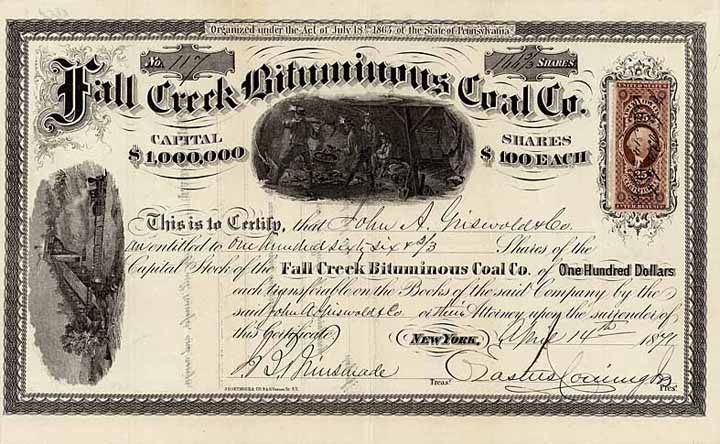 Organized under the Act of July 18th 1863, of the State of Pennsylvania
No. 117
166 2/3 SHARES
Fall Creek Bituminous Coal Co.
CAPITAL
$1,000,000
SHARES
$100 EACH
UNITED STATES
25
25
This is to Certify, that John A. Griswold & Co.
are entitled to One hundred sixty six & 2/3 Shares of the
Capital Stock of the Fall Creek Bituminous Coal Co. of One Hundred Dollars
each transferable on the Books of the said Company by the
said John A Griswold & Co or their Attorney upon the surrender of
this Certificate.
NEW YORK, April 14th 187
Treasr.
Erastus Corning Jr
Prest.